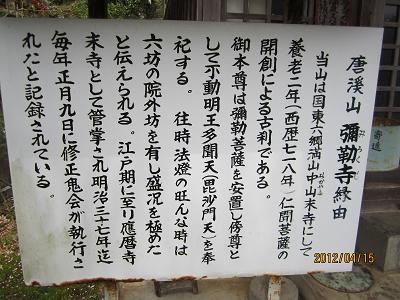 唐渓山 彌勒寺縁由
みろくじ
当山は国東六郷満山中山末寺にして
養老二年(西歴七一八年)仁聞菩薩の
開創による古刹である。
御本尊は彌勒菩薩を安置し傍尊と
して不動明王多聞天(毘沙門天)を奉
祀する。 往時法燈の旺んな時は
六坊の院外坊を有し盛况を極めた
と伝えられる。江戸期に至り應暦寺
末寺として管掌され明治三十七年迄
毎年正月九日に修正鬼会が執行さ
れたと記録されている。
2012/04/15